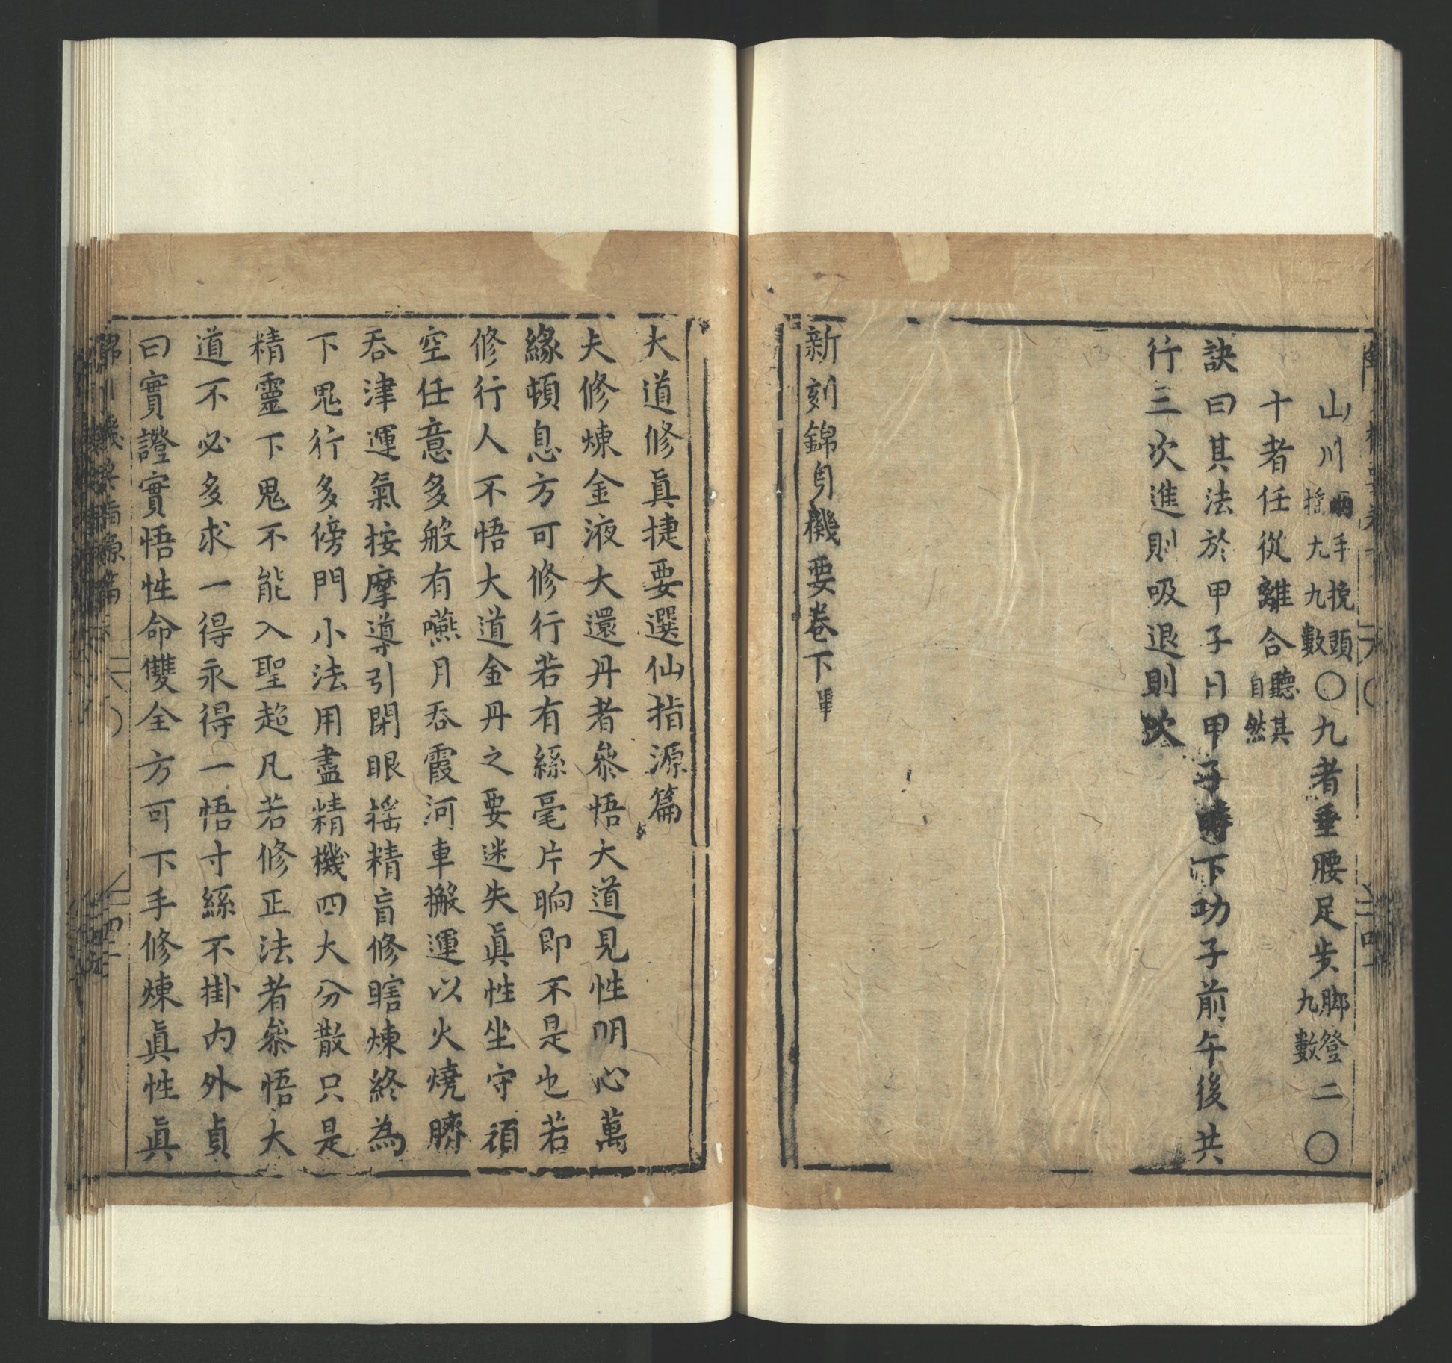 山川兩手挽頭搖九九數〇九者垂腰足步脚登九數二〇
十者任從離合聽其自然
訣曰其法於甲子日甲子時下功子前午後共
行三次進則吸退則吹
新刻錦身機要卷下畢
大道修真捷要選仙指源篇
夫修煉金液大還丹者叅悟大道見性明心萬
緣頓息方可修行若有絲毫片晌即不是也若
修行人不悟大道金丹之要迷失眞性坐守頑
空任意多般有嚥月吞霞河車搬運以火燒臍
吞津運氣按摩導引閉眼搖精盲修瞎煉終為
下鬼行多傍門小法用盡精機四大分散只是
精靈下鬼不能入聖超凡若修正法者叅悟大
道不必多求一得永得一悟寸絲不掛內外貞
曰實證實悟性命雙全方可下手修煉眞性眞